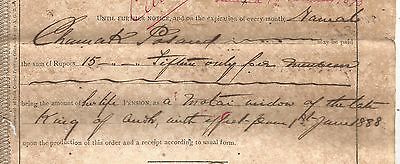 UNTIL FURTHER NOTICE, and on the expiration of every month, Mamat
Chumak may be paid
the sum of Rupees 15 — Fifteen only per mensem
being the amount of her life PENSION as a Motai widow of the late
King of Oudh with effect from 1st June 1888
upon the production of this order and a receipt according to usual form.